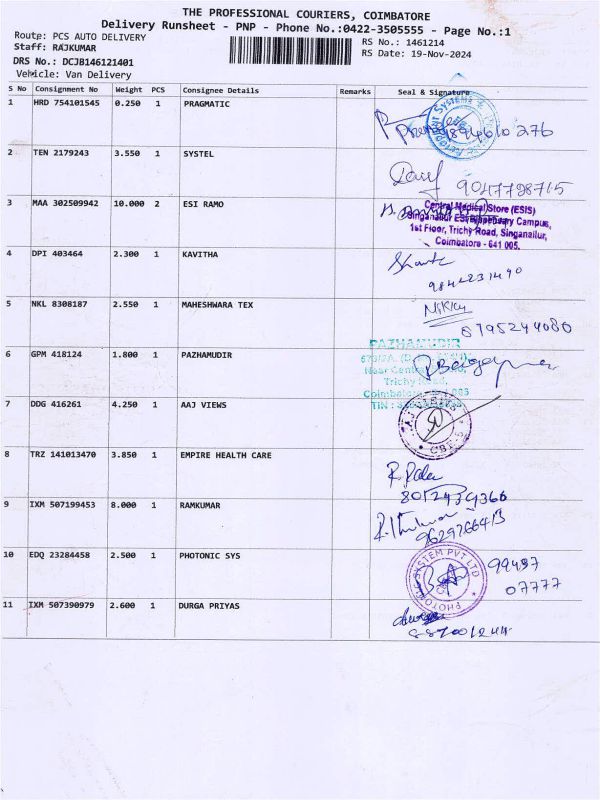 THE PROFESSIONAL COURIERS, COIMBATORE
Delivery Runsheet - PNP - Phone No.:0422-3505555 - Page No.:1
Route: PCS AUTO DELIVERY
RS No.: 1461214
Staff: RAJKUMAR
RS Date: 19-Nov-2024
DRS No.: DCJB146121401
Vehicle: Van Delivery
S No Consignment No Weight PCS Consignee Details Remarks Seal & Signature
1 HRD 754101545 0.250 1 PRAGMATIC
2 TEN 2179243 3.550 1 SYSTEL
9047798715
3 MAA 302509942 10.000 2 ESI RAMO
Central Medical Store (ESIS)
Singanallur ESI Dispensary Campus,
1st Floor, Trichy Road, Singanallur,
Coimbatore - 641 005.
4 DPI 403464 2.300 1 KAVITHA
5 NKL 8308187 2.550 1 MAHESHWARA TEX
8795244080
6 GPM 418124 1.800 1 PAZHAMUDIR
PAZHAMUDIR
Trichy Road,
7 DDG 416261 4.250 1 AAJ VIEWS
8 TRZ 141013470 3.850 1 EMPIRE HEALTH CARE
9 IXM 507199453 8.000 1 RAMKUMAR
10 EDQ 23284458 2.500 1 PHOTONIC SYS
SYSTEM PVT LTD
99497
07777
11 IXM 507390979 2.600 1 DURGA PRIYAS